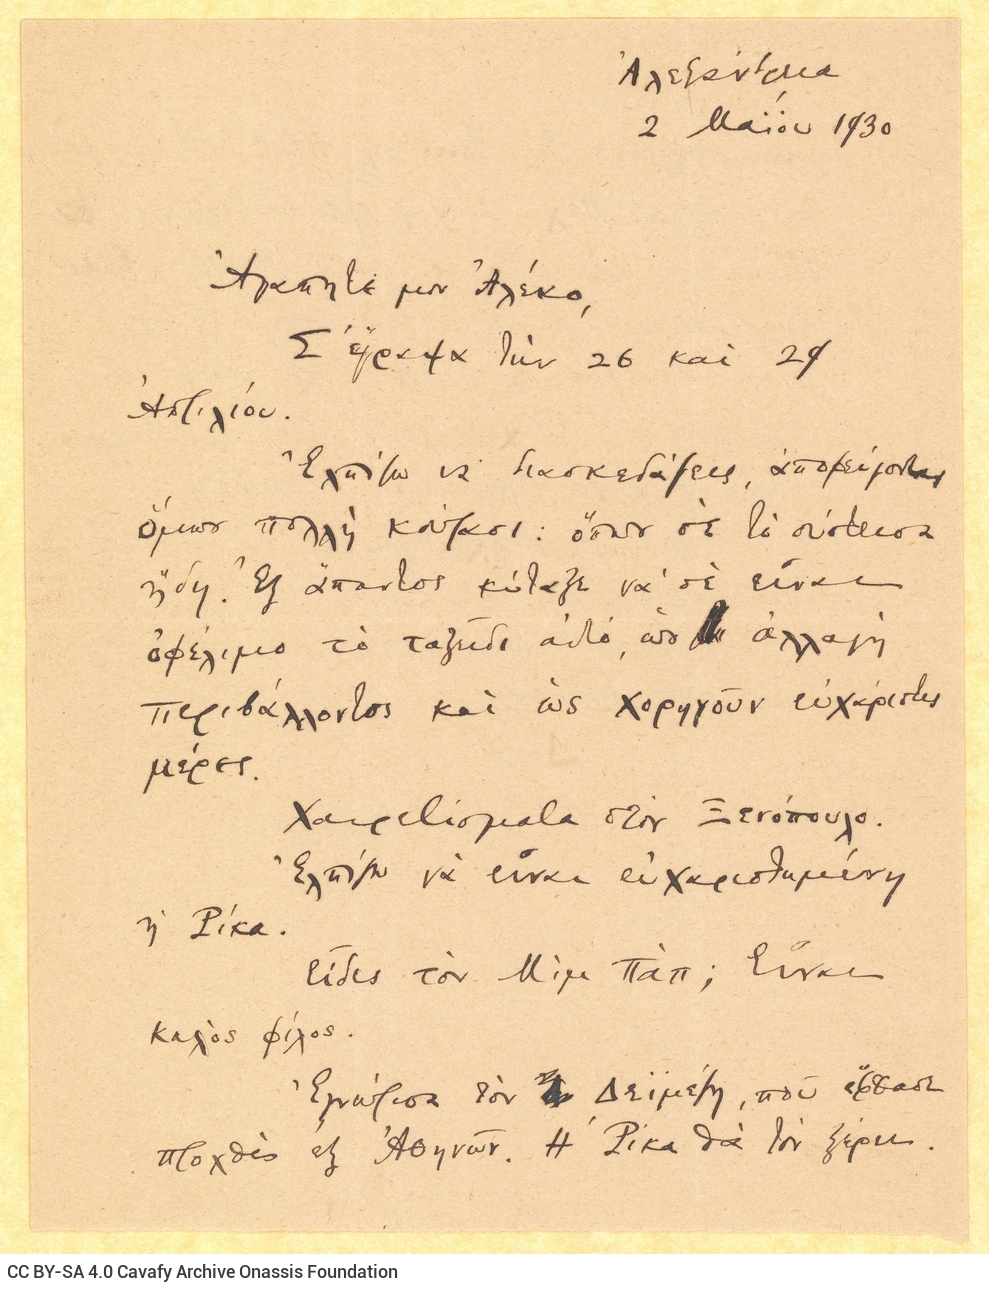 Ἀλεξάνδρεια
2 Μαΐου 1930
Ἀγαπητέ μου Ἀλέκο,
Σ' ἔγραψα τὴν 26 καὶ 29
Ἀπριλίου.
Ἐλπίζω νὰ διασκεδάζεις, ἀποφεύγοντας
ὅμως πολλὴ κούρασι: ὅπως σὲ τὸ σύστησα
ἤδη. Ἐξ ἅπαντος κύταξε νὰ σὲ εἶναι
ὀφέλιμο τὸ ταξεῖδι αὐτό, ὡς ἀλλαγὴ
περιβάλλοντος καὶ ὡς χορηγοῦν εὐχάριστες
μέρες.
Χαιρετίσματα στὸν Ξενόπουλο.
Ἐλπίζω νὰ εἶναι εὐχαριστημένη
ἡ Ρίκα.
Εἶδες τὸν Μὶμ Πάπ; Εἶναι
καλὸς φίλος.
Ἐγνώρισα τὸν Δεϊμέζη, ποὺ ἔφθασε
προχθὲς ἐξ Ἀθηνῶν. Ἡ Ρίκα θὰ τὸν ξέρει.
CC BY-SA 4.0 Cavafy Archive Onassis Foundation